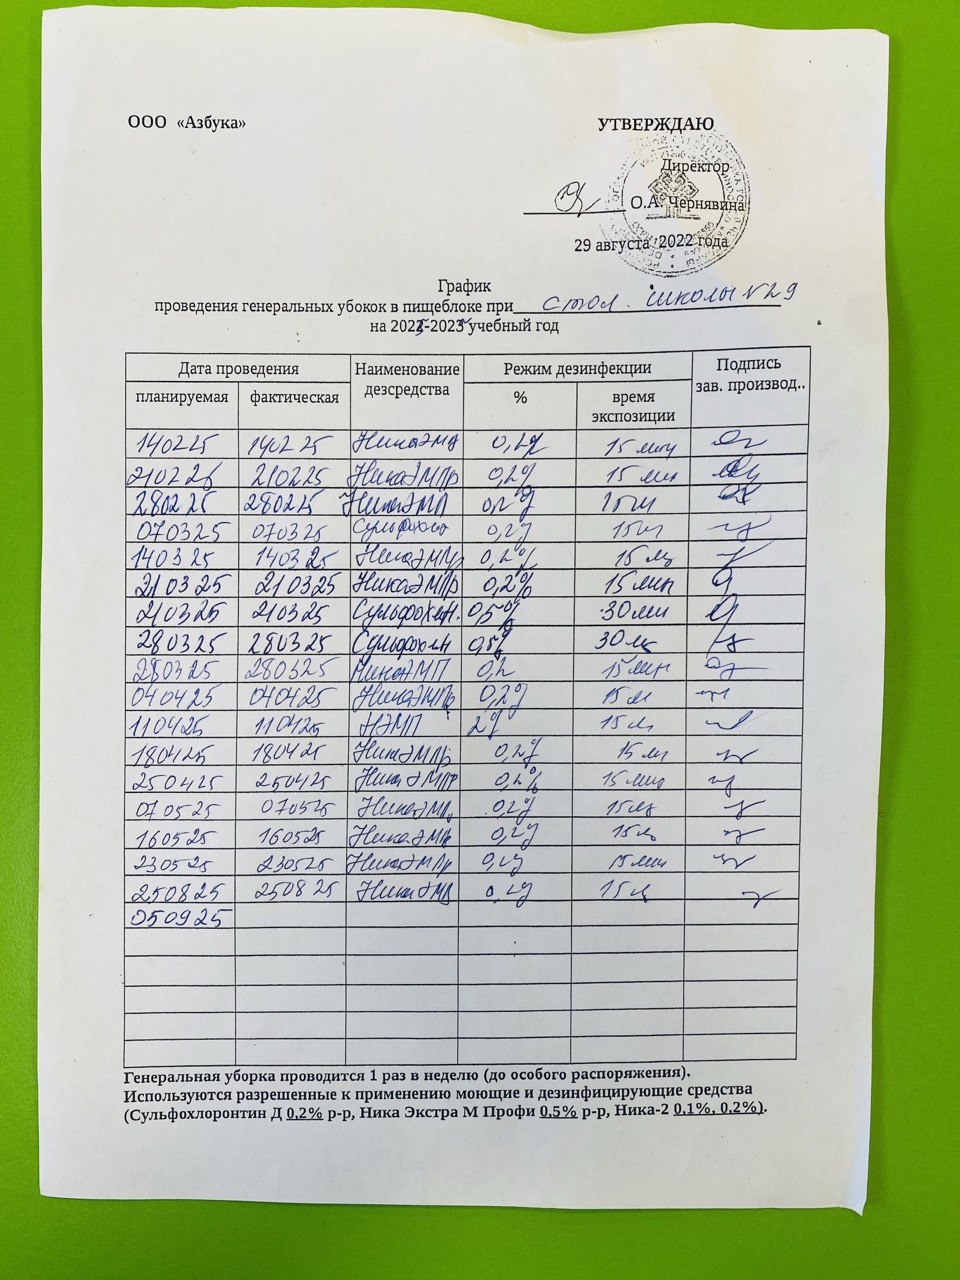 ООО «Азбука»
УТВЕРЖДАЮ
Директор
О.А. Чернявина
29 августа 2022 года
График
проведения генеральных убокок в пищеблоке при стол. школы №29
на 2025-2025 учебный год
Дата проведения Наименование дезсредства Режим дезинфекции Подпись зав. производ..
планируемая фактическая % время экспозиции
140225 140225 НикаЭМП 0,2% 15 мин
210225 210225 НикаЭМПр 0,2% 15 мин
280225 280225 НикаЭМП 0,2% 15 м
070325 070325 0,2% 15 м
140325 140325 НикаЭМПр 0,2% 15 м
210325 210325 НикаЭМПр 0,2% 15 мин
210325 210325 Сульфохлн. 0,5% 30 мин
280325 280325 Сульфохлн 0,5% 30 м
280325 280325 НикаЭМП 0,2 15 мин
040425 040425 НикаЭМПр 0,2% 15 м
110425 110425 НЭМП 2% 15 м
180425 180425 НикаЭМПр 0,2% 15 м
250425 250425 НикаЭМПр 0,2% 15 мин
070525 070525 НикаЭМПр 0,2% 15 м
160525 160525 НикаЭМПр 0,2% 15 м
230525 230525 НикаЭМПр 0,2% 15 мин
250825 250825 НикаЭМП 0,2% 15 м
050925
Генеральная уборка проводится 1 раз в неделю (до особого распоряжения).
Используются разрешенные к применению моющие и дезинфицирующие средства
(Сульфохлоронтин Д 0,2% р-р, Ника Экстра М Профи 0,5% р-р, Ника-2 0,1%, 0,2%).